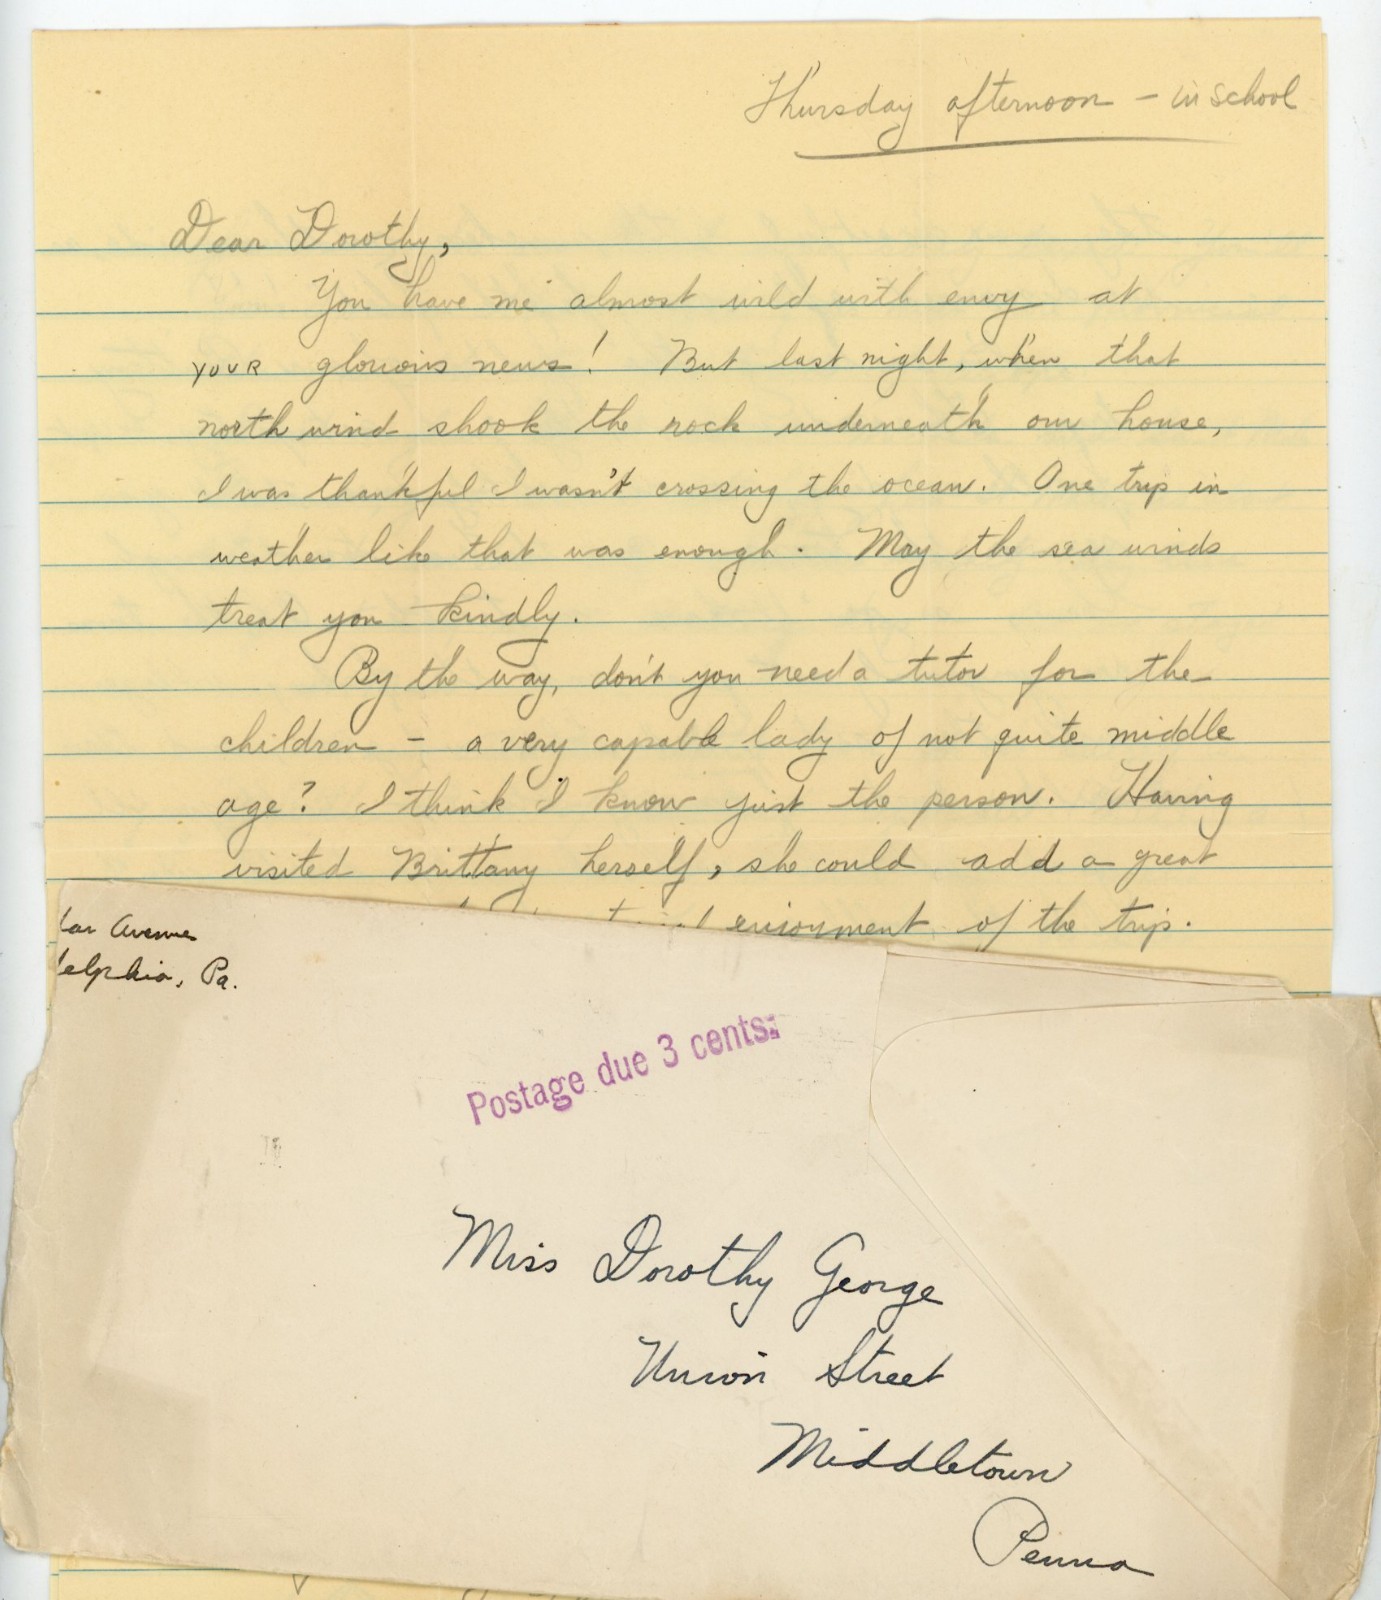 Thursday afternoon – in school
Dear Dorothy,
You have me almost wild with envy at
YOUR glorious news! But last night, when that
north wind shook the rock underneath our house,
I was thankful I wasn't crossing the ocean. One trip in
weather like that was enough. May the sea winds
treat you kindly.
By the way, don't you need a tutor for the
children – a very capable lady of not quite middle
age? I think I know just the person. Having
visited Brittany herself, she could add a great
enjoyment of the trip.
lar Avenue
delphia, Pa.
Postage due 3 cents.
Miss Dorothy George
Union Street
Middletown
Penna